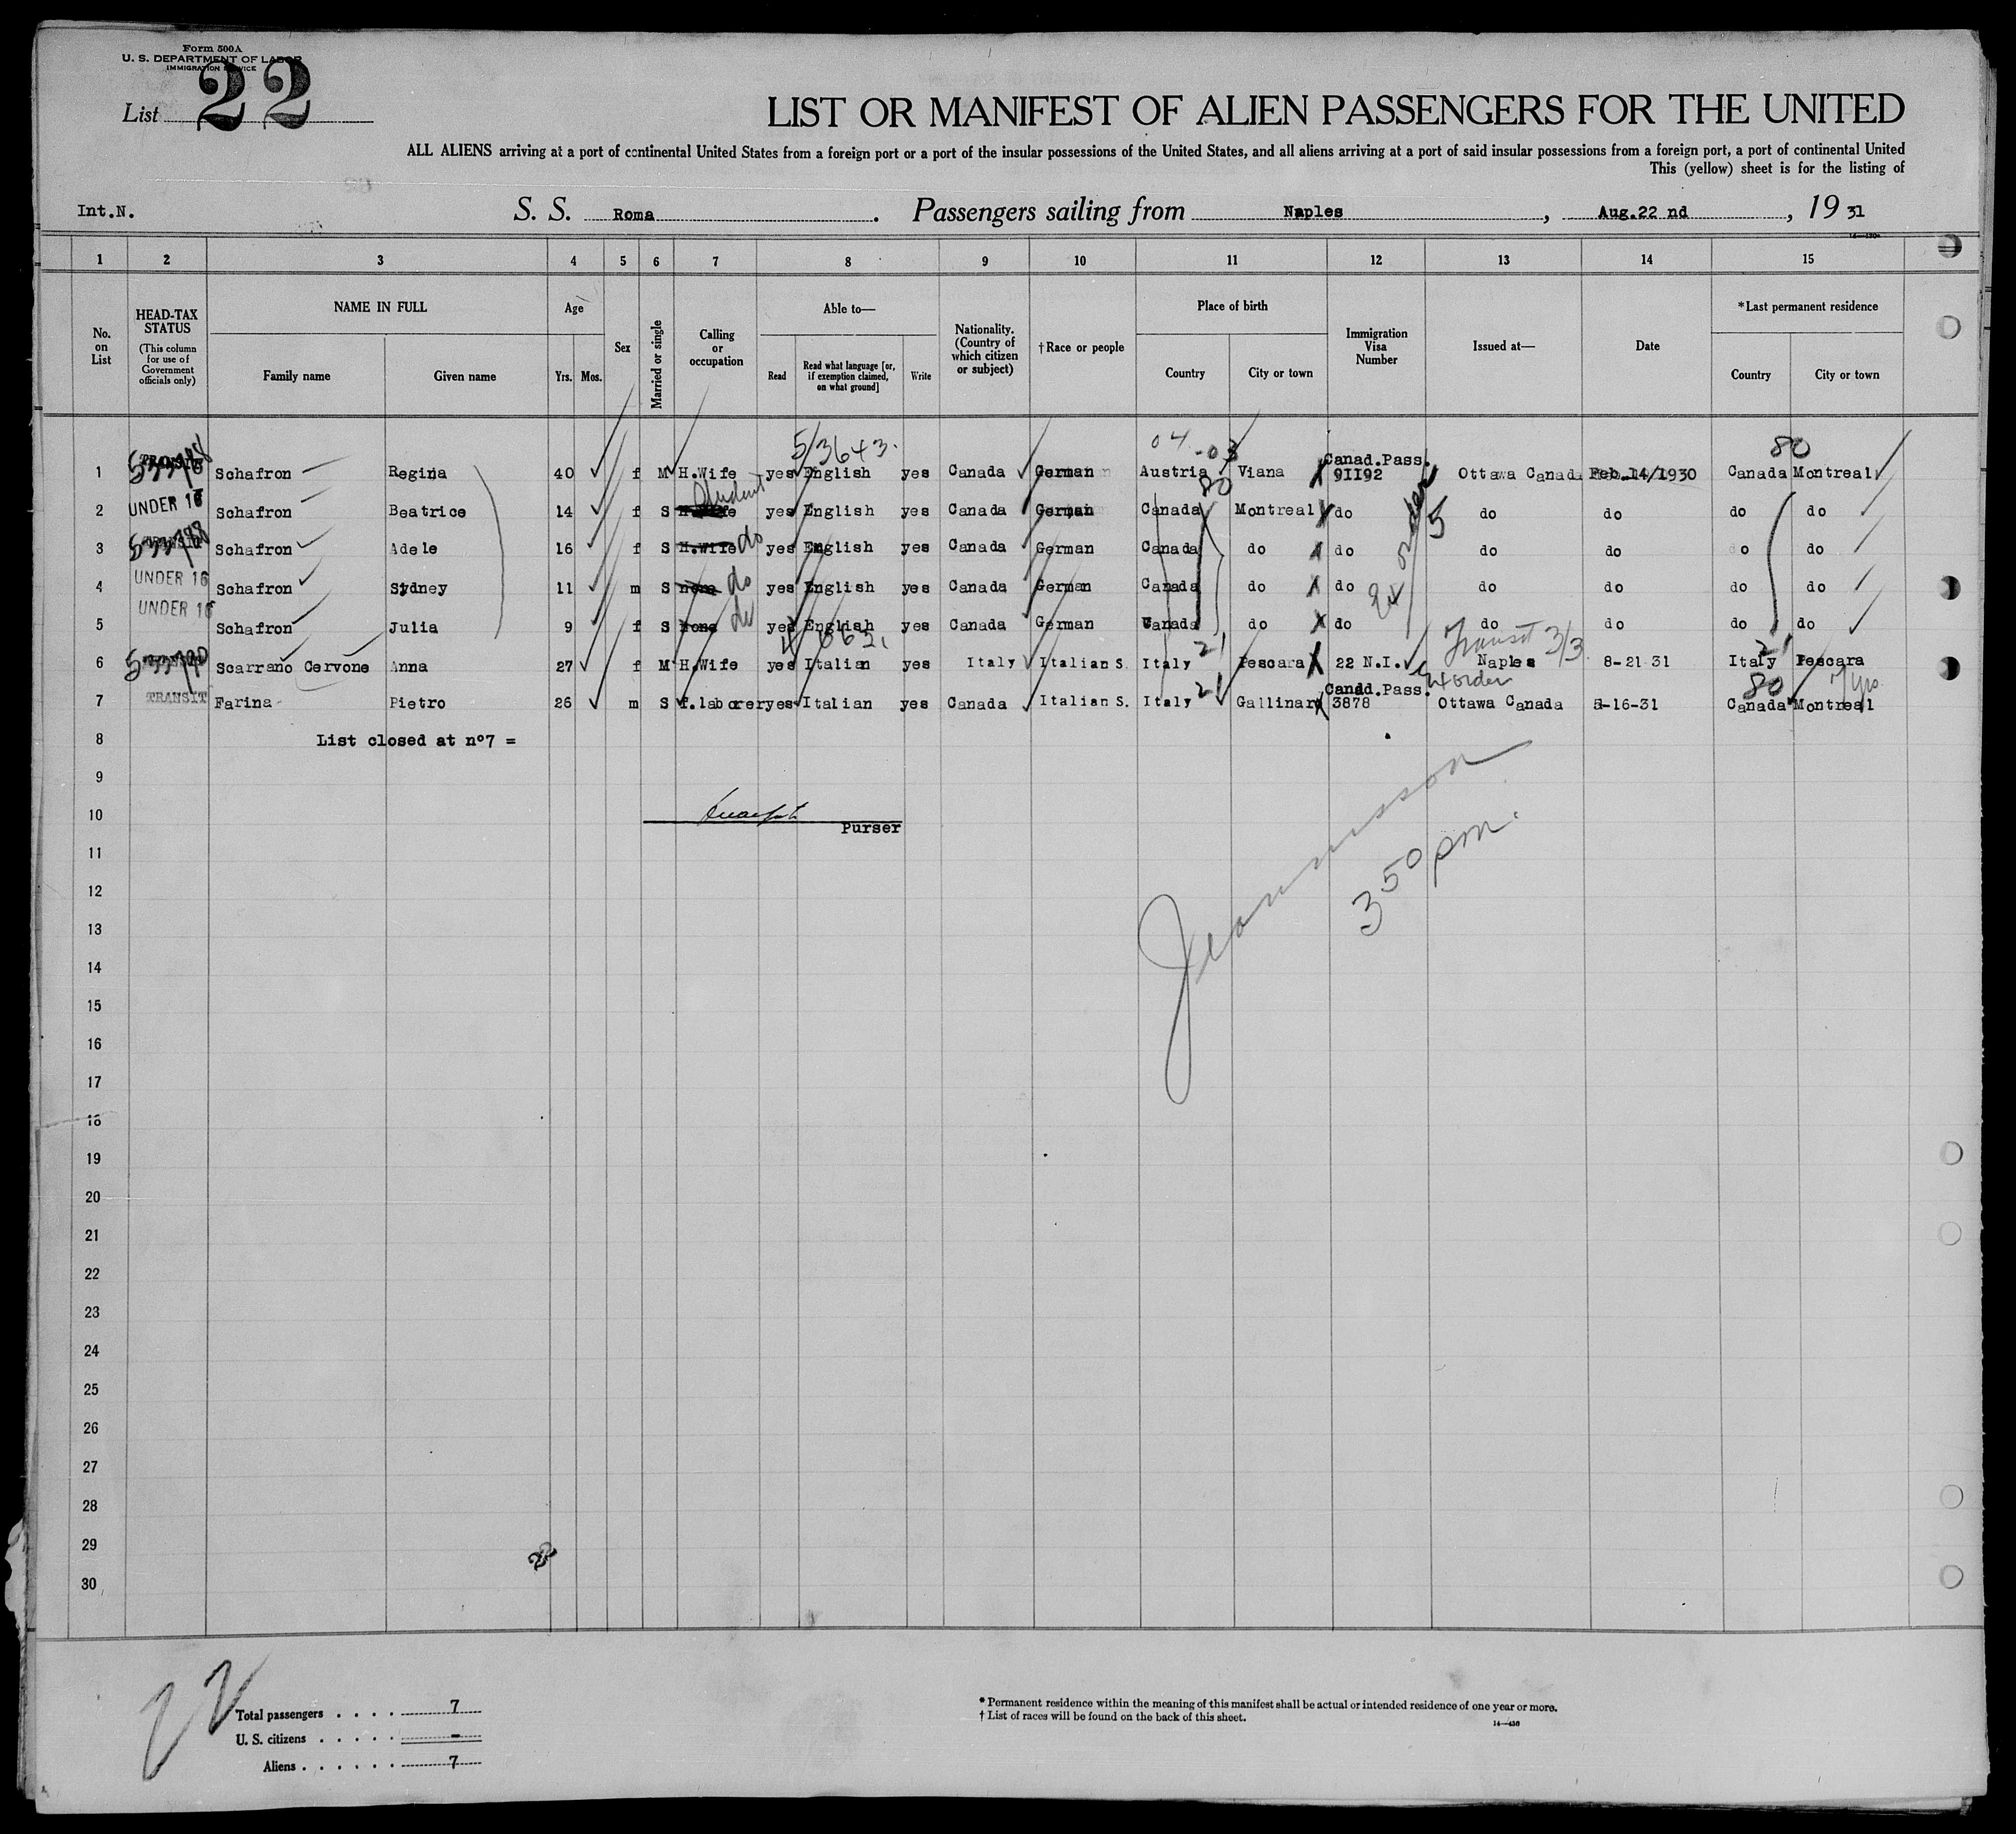 Form 500A
U. S. DEPARTMENT OF LABOR
IMMIGRATION SERVICE
List 22
LIST OR MANIFEST OF ALIEN PASSENGERS FOR THE UNITED
ALL ALIENS arriving at a port of continental United States from a foreign port or a port of the insular possessions of the United States, and all aliens arriving at a port of said insular possessions from a foreign port, a port of continental United
This (yellow) sheet is for the listing of
Int.N. S. S. Roma. Passengers sailing from Naples, Aug.22 nd, 19 31
1 2 3 4 5 6 7 8 9 10 11 12 13 14 15
No. on List
HEAD-TAX STATUS
(This column for use of Government officials only)
NAME IN FULL
Family name Given name
Age
Yrs. Mos.
Sex
Married or single
Calling or occupation
Able to—
Read
Read what language [or, if exemption claimed, on what ground]
Write
Nationality. (Country of which citizen or subject)
†Race or people
Place of birth
Country City or town
Immigration Visa Number
Issued at—
Date
*Last permanent residence
Country City or town
5/3643. 04 -03 80
1 TRANSIT Schafron Regina 40 f M H.Wife yes English yes Canada German Austria Viana Canad.Pass. 91192 Ottawa Canada Feb.14/1930 Canada Montreal
Student 80
2 UNDER 16 Schafron Beatrice 14 f S H.Wife yes English yes Canada German Canada Montreal do 5 do do do do
3 TRANSIT Schafron Adele 16 f S H.Wife do yes English yes Canada German Canada do do do do do do
4 UNDER 16 Schafron Sydney 11 m S none do yes English yes Canada German Canada do do do do do do
5 UNDER 16 Schafron Julia 9 f S none do yes English yes Canada German Canada do do do do do do
21 Transit 3/3 21
6 Scarrano Cervone Anna 27 f M H.Wife yes Italian yes Italy Italian S. Italy Pescara 22 N.I. Naples 8-21 31 Italy Pescara
21 Ex order 80 yrs.
7 TRANSIT Farina Pietro 26 m S f.laborer yes Italian yes Canada Italian S. Italy Gallinaro Canad.Pass. 3878 Ottawa Canada 5-16-31 Canada Montreal
8 List closed at n°7 =
9
10
Purser
11
12
350 pm.
13
14
15
16
17
18
19
20
21
22
23
24
25
26
27
28
29
30
22
Total passengers . . . . 7
U. S. citizens . . . . . -
Aliens . . . . . . 7
* Permanent residence within the meaning of this manifest shall be actual or intended residence of one year or more.
† List of races will be found on the back of this sheet.
14—430